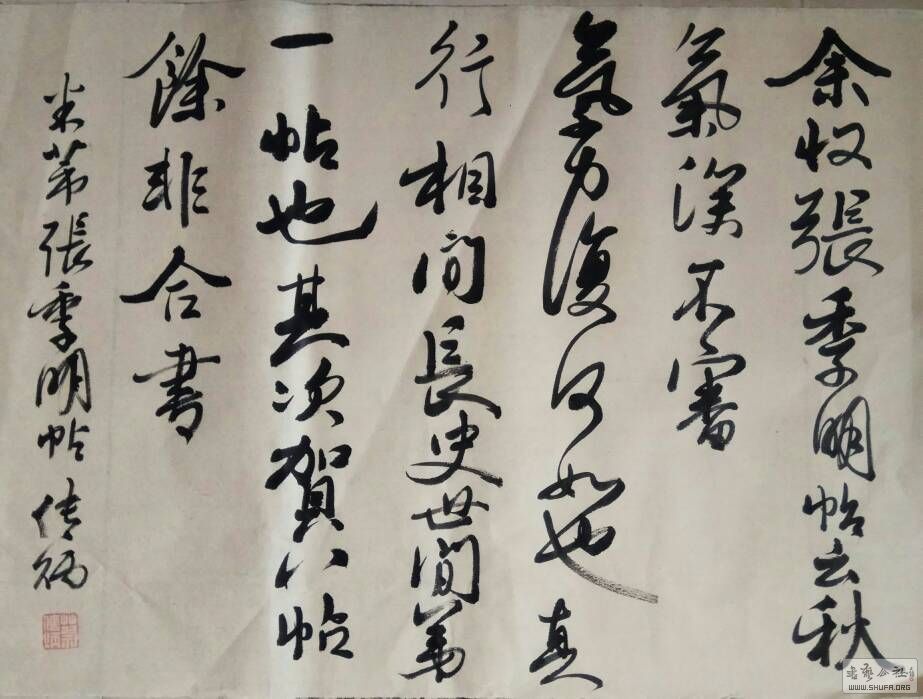 余收張季明帖云秋
氣深不審
氣力復何如也真
行相間長史世間第
一帖也其次賀八帖
餘非合書
米芾張季明帖 传炳
書藝公社
WWW.SHUFA.ORG